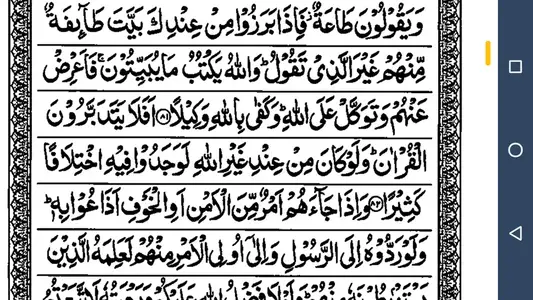 وَيَقُوۡلُوۡنَ طَاعَةٌ فَاِذَا بَرَزُوۡا مِنۡ عِنۡدِكَ بَيَّتَ طَآئِفَةٌ
مِّنۡهُمۡ غَيۡرَ الَّذِىۡ تَقُوۡلُ ؕ وَاللّٰهُ يَكۡتُبُ مَا يُبَيِّتُوۡنَ ۚ فَاَعۡرِضۡ
عَنۡهُمۡ وَتَوَكَّلۡ عَلَى اللّٰهِ ؕ وَكَفٰى بِاللّٰهِ وَكِيۡلًا ﴿۸۱﴾ اَفَلَا يَتَدَبَّرُوۡنَ
الۡقُرۡاٰنَ ؕ وَلَوۡ كَانَ مِنۡ عِنۡدِ غَيۡرِ اللّٰهِ لَوَجَدُوۡا فِيۡهِ اخۡتِلَافًا
كَثِيۡرًا ﴿۸۲﴾ وَاِذَا جَآءَهُمۡ اَمۡرٌ مِّنَ الۡاَمۡنِ اَوِ الۡخَوۡفِ اَذَاعُوۡا بِهٖ ؕ
وَلَوۡ رَدُّوۡهُ اِلَى الرَّسُوۡلِ وَاِلٰٓى اُولِى الۡاَمۡرِ مِنۡهُمۡ لَعَلِمَهُ الَّذِيۡنَ